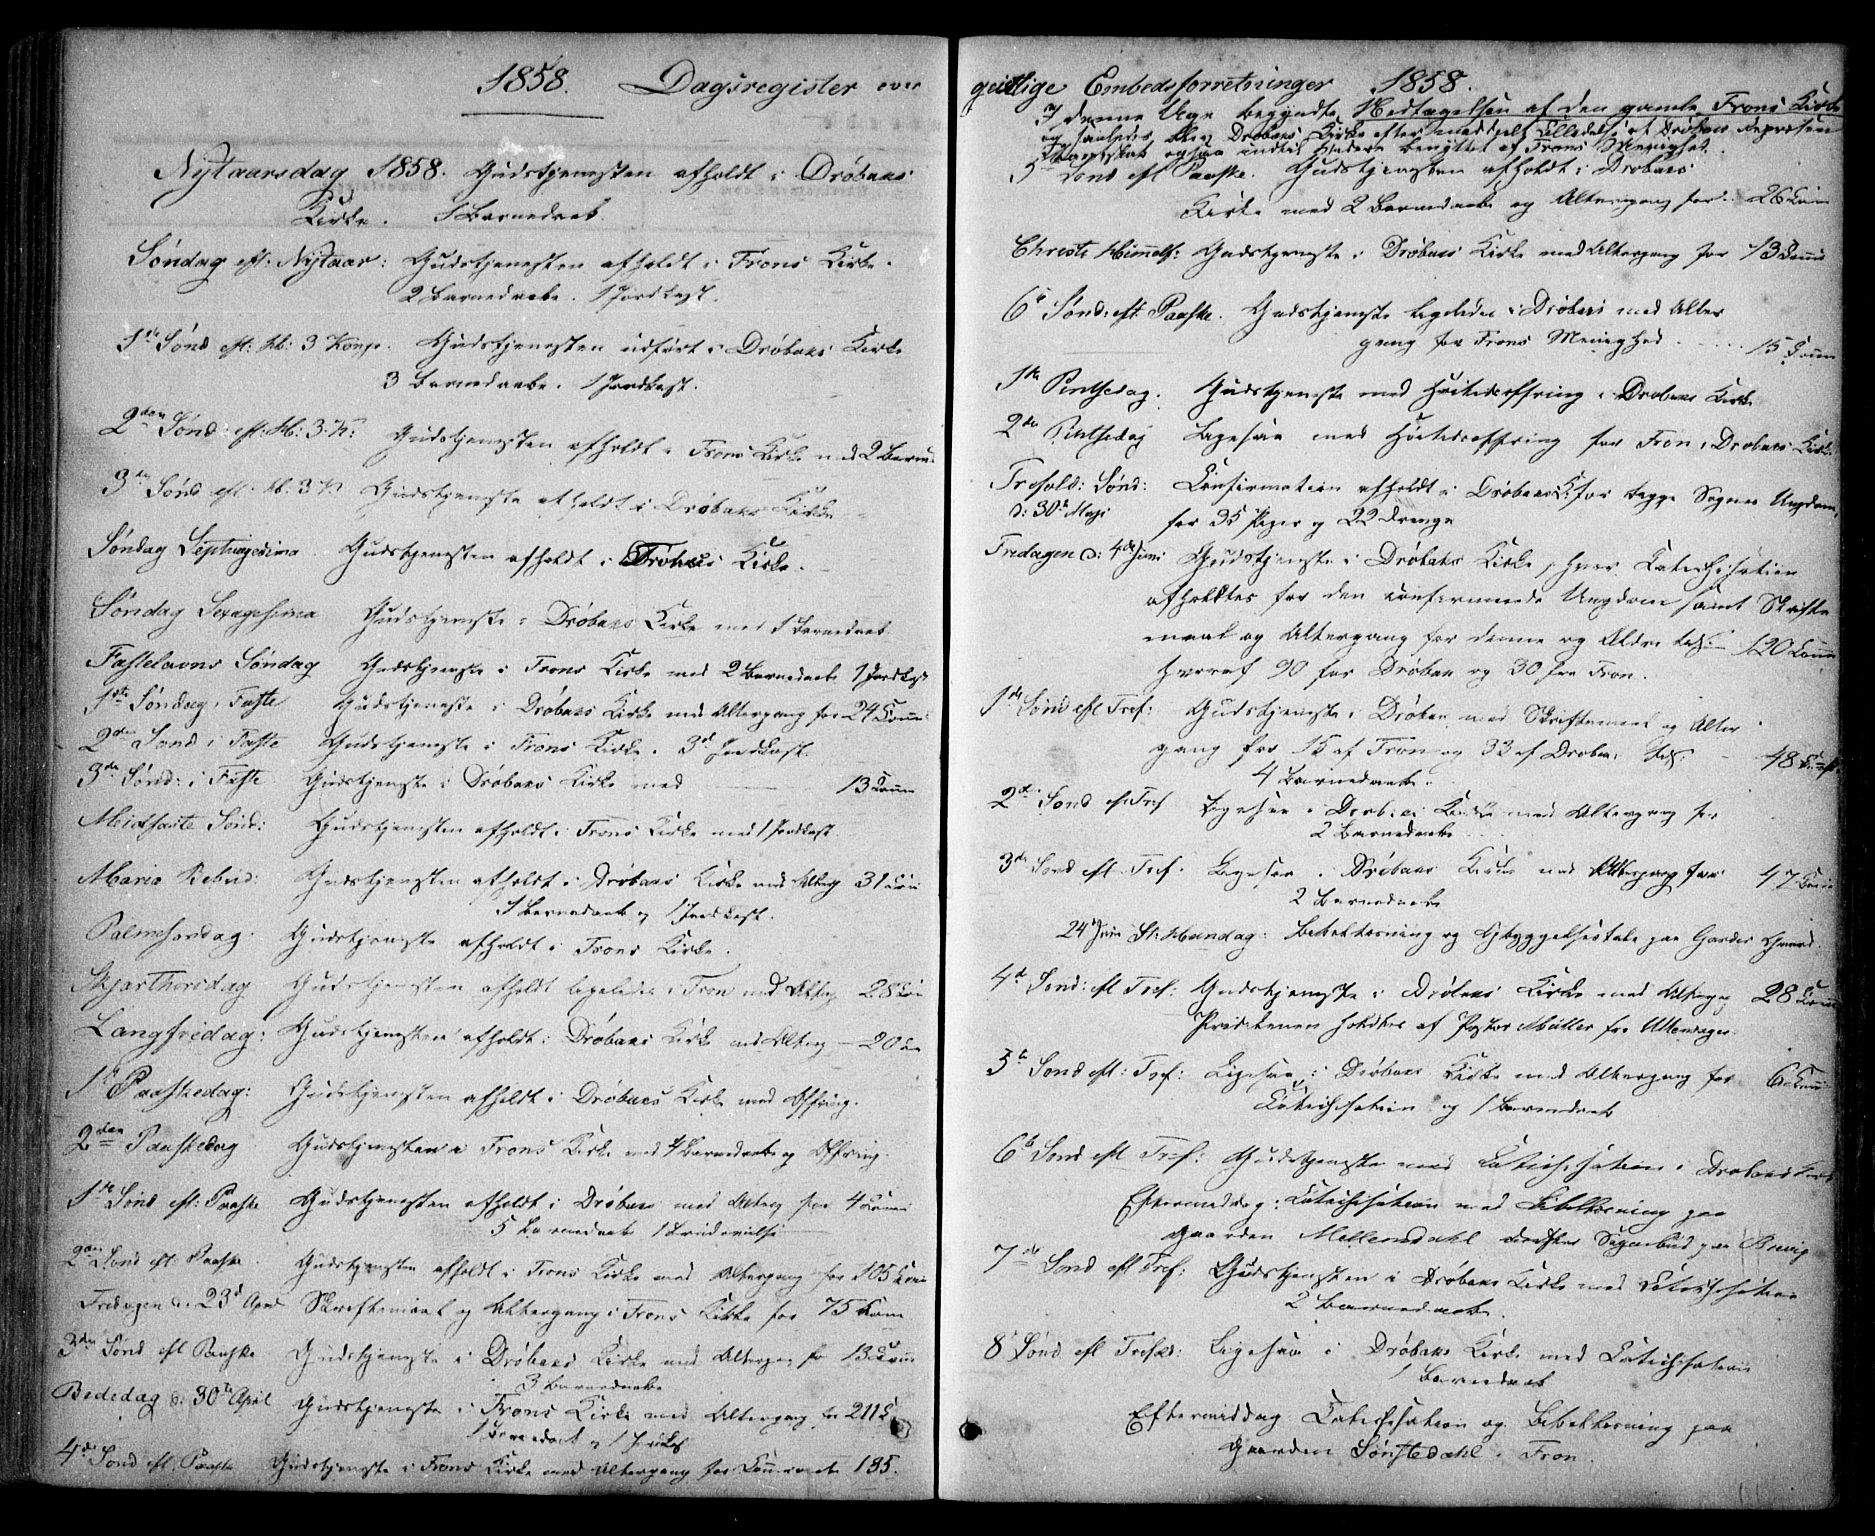 1858. Dagsregister over
Nytaarsdag 1858. Gudstjenesten afholdt i Drøbaks
Kirke. 1 Barnedaab.
Søndag eft. Nytaar: Gudstjenesten afholdt i Frons Kirke.
2 Barnedaabe. 1 Jordkast.
1ste Sønd eft: H: 3 Konge. Gudstjenesten udført i Drøbaks Kirke
3 Barnedaabe. 1 Jordkast.
2den Sønd: eft: H: 3: K: Gudstjenesten afholdt i Frons Kirke med 2 Barned
3die Sønd eft. H. 3 K. Gudstjeneste afholdt i Drøbaks Kirke
Søndag Septuagesima Gudstjenesten afholdt i Kirke.
Søndag Sexagesima Gudstjeneste i Drøbaks Kirke med 1 Barnedaab.
Fastelavns Søndag Gudstjeneste i Frons Kirke med 2 Barnedaabe 1 Jordkast
1ste Søndag i Faste Gudstjeneste i Drøbaks Kirke med Altergang for 24 Comm:
2den Sønd i Faste Gudstjeneste i Frons Kirke. 3 Jordkast.
3die Sønd: i Faste Gudstjeneste i Drøbaks Kirke med 13 Comm
Midfaste Sønd: Gudstjenesten afholdt i Frons Kirke med 1 Jordkast
Maria Bebud: Gudstjenesten afholdt i Drøbaks Kirke med Alterg 31 Com
1 Barnedaab og 1 Jordkast.
Palmesøndag. Gudstjeneste afholdt i Frons Kirke.
Skjærthorsdag Gudstjenesten afholdt ligeledes i Fron med Alterg 28 Com
Langfredag: Gudstjenesten afholdt i Drøbaks Kirke med Alterg 20 Com
1ste Paaskedag: Gudstjenesten afholdt i Drøbaks Kirke med Offring.
2den Paaskedag Gudstjenesten i Frons Kirke med 4 Barnedaabe og Offring.
1ste Sønd eft: Paaske Gudstjenesten afholdt i Drøbaks med Alterg for 4 Comm
5 Barnedaabe 1 Brudevielse
2den Sønd eft Paaske. Gudstjenesten afholdt i Frons Kirke med Altergang for 105 Com
Fredagen d. 23d April Skriftemaal og Altergang i Frons Kirke for 75 Com
3die Sønd eft Paaske Gudstjeneste i Drøbaks Kirke med Altergang for 13 Comm
3 Barnedaabe
Bededag d. 30te April Gudstjeneste i Frons Kirke med Altergang for 211 C
1 Barnedaab og 1 Jordkast
4de Sønd eft. Paaske Gudstjeneste i Frons Kirke med Altergang for Communicanter 185.
geistlige Embedsforretninger 1858.
I denne Uge begyndte Nedtagelsen af den gamle Frons Kirke
og saaledes blev Drøbaks Kirke efter meddelt Tilladelse af Drøbaks Repræsen
tantskab ogsaa indtil videre benyttet af Frons Menighed.
5te Sønd eft Paaske. Gudstjenesten afholdt i Drøbaks
Kirke med 2 Barnedaabe og Altergang for 26 Com
Christi Himmelf: Gudstjeneste i Drøbaks Kirke med Altergang for 13 Comm
6te Sønd: eft: Paaske. Gudstjeneste ligeledes i Drøbaks med Alter
gang for Frons Menighed 15 Comm
1ste Pintsedag. Gudstjeneste med Høitidsoffring i Drøbaks Kirke
2den Pintsedag Ligesaa med Høitidsoffring for Fron i Drøbaks Kirke
Trefold: Sønd: Confirmation afholdt i Drøbaks K: for begge Sognes Ungdom,
d: 30te Mai for 35 Piger og 22 Drenge
Fredagen d: 4de Juni Gudstjeneste i Drøbaks Kirke, hvor Catechisation
afholdtes for den confirmerede Ungdom samt Skrifte
maal og Altergang for denne og Ældre tils: 120 Comm
hvoraf 90 for Drøbak og 30 fra Fron.
1ste Sønd eft Tref: Gudstjeneste i Drøbak med Skriftemaal og Alter
gang for 15 af Fron og 33 af Drøbak tils: 48 Comm
4 Barnedaabe
2den Sønd eft Tref Ligesaa i Drøbaks Kirke med Altergang for
2 Barnedaabe
3die Sønd eft. Tref. Ligesaa i Drøbaks Kirke med Altergang for 47 Com
2 Barnedaabe
24de Juni St. Hansdag: Bibellæsning og Opbyggelsestale paa Gaarden
4de Sønd: eft Tref: Gudstjeneste i Drøbaks Kirke med Alterg 28 Com
Prædikenen holdtes af Pastor Müller fra Ullensager.
5te Sønd eft: Tref: Ligesaa i Drøbaks Kirke med Altergang for 6 Comm
Catechisation og 1 Barnedaab
6te Sønd eft Tref: Gudstjeneste med Catechisation i Drøbaks Kirke
Eftermiddag: Catechisation med Bibellæsning paa
Gaarden Mellemdahl derefter Sognebud paa
7de Sønd eft Tref: Gudstjenesten i Drøbaks Kirke med Catechisation
2 Barnedaabe.
8de Sønd eft Trefold: Ligesaa i Drøbaks Kirke med Catechisation
1 Barnedaab
Eftermiddag Catechisation og Bibellæsning paa
Gaarden Sønstedahl i Fron.